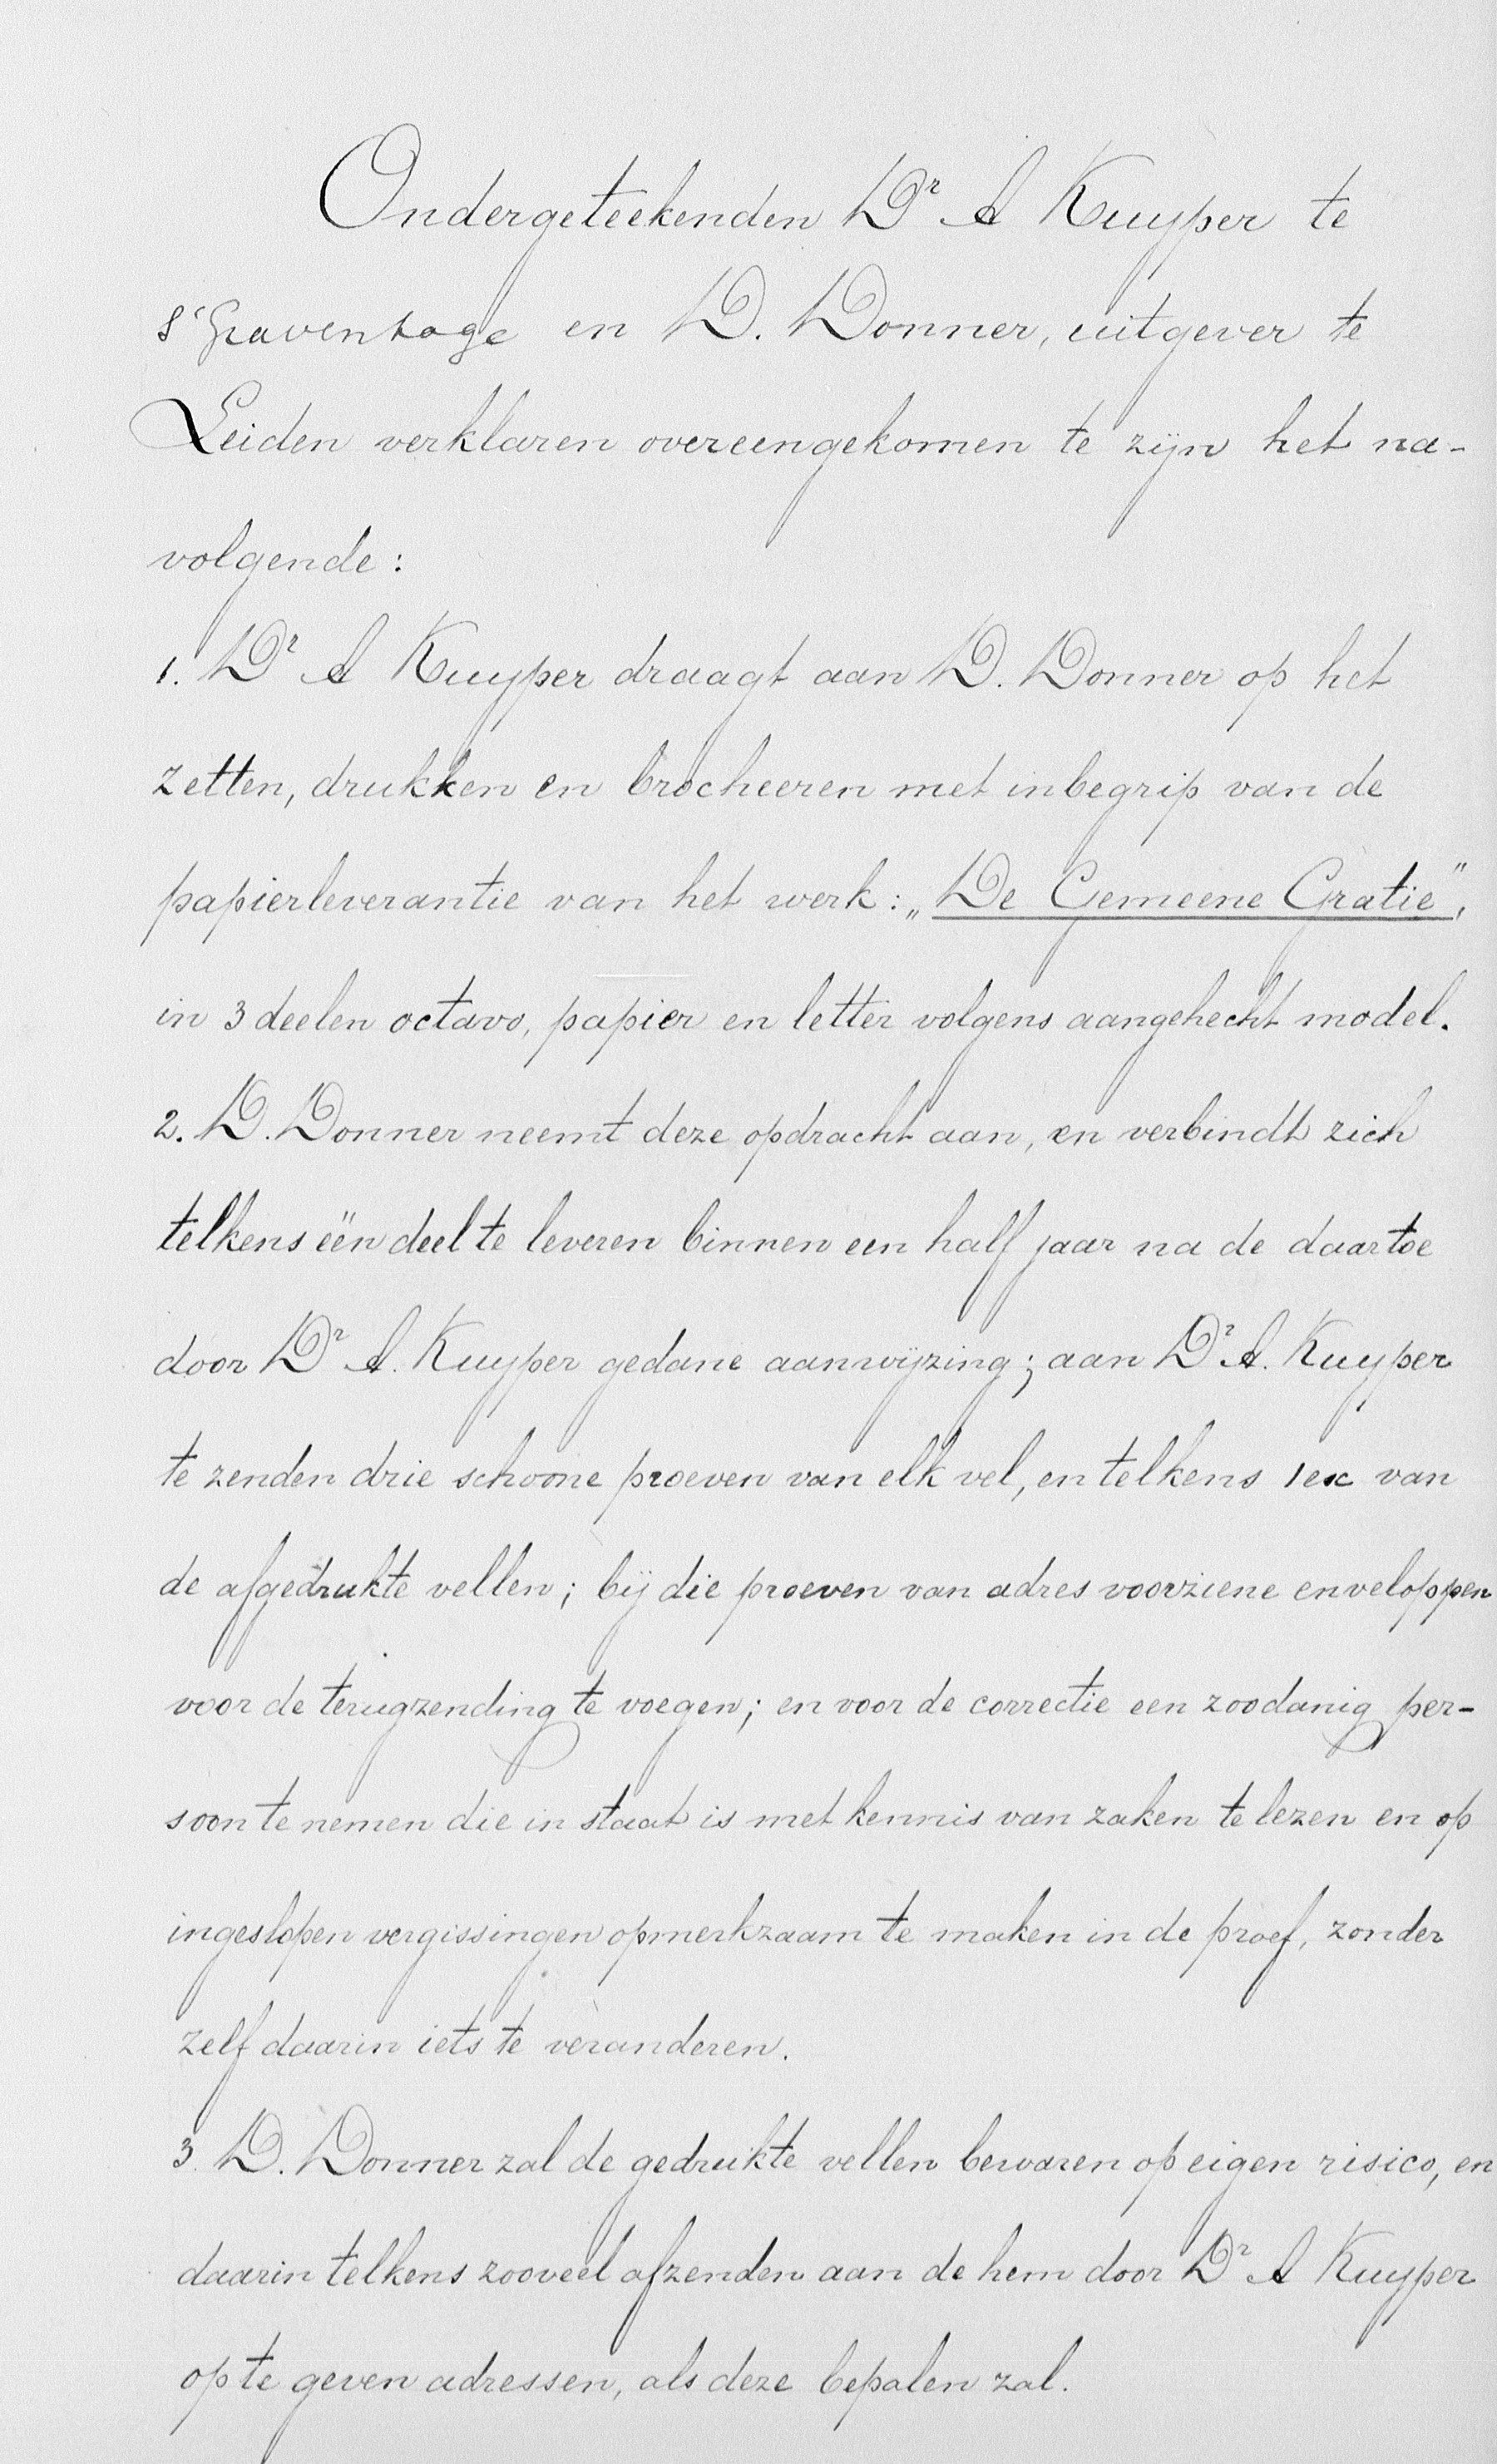 Ondergeteekenden Dr A Kuyper te
s'Gravenhage en D. Donner, uitgever te
Leiden verklaren overeengekomen te zijn het na-
volgende:
1. Dr A Kuyper draagt aan D. Donner op het
zetten, drukken en brocheeren met inbegrip van de
papierleverantie van het werk: „De Gemeene Gratie",
in 3 deelen octavo, papier en letter volgens aangehecht model.
2. D. Donner neemt deze opdracht aan, en verbindt zich
telkens één deel te leveren binnen een half jaar na de daartoe
door Dr A. Kuyper gedane aanwijzing; aan Dr A. Kuyper
te zenden drie schoone proeven van elk vel, en telkens 1 ex van
de afgedrukte vellen; bij die proeven van adres voorziene enveloppen
voor de terugzending te voegen; en voor de correctie een zoodanig per-
soon te nemen die in staat is met kennis van zaken te lezen en op
ingeslopen vergissingen opmerkzaam te maken in de proef, zonder
zelf daarin iets te veranderen.
3. D. Donner zal de gedrukte vellen bewaren op eigen risico, en
daarin telkens zooveel afzenden aan de hem door Dr A Kuyper
op te geven adressen, als deze bepalen zal.